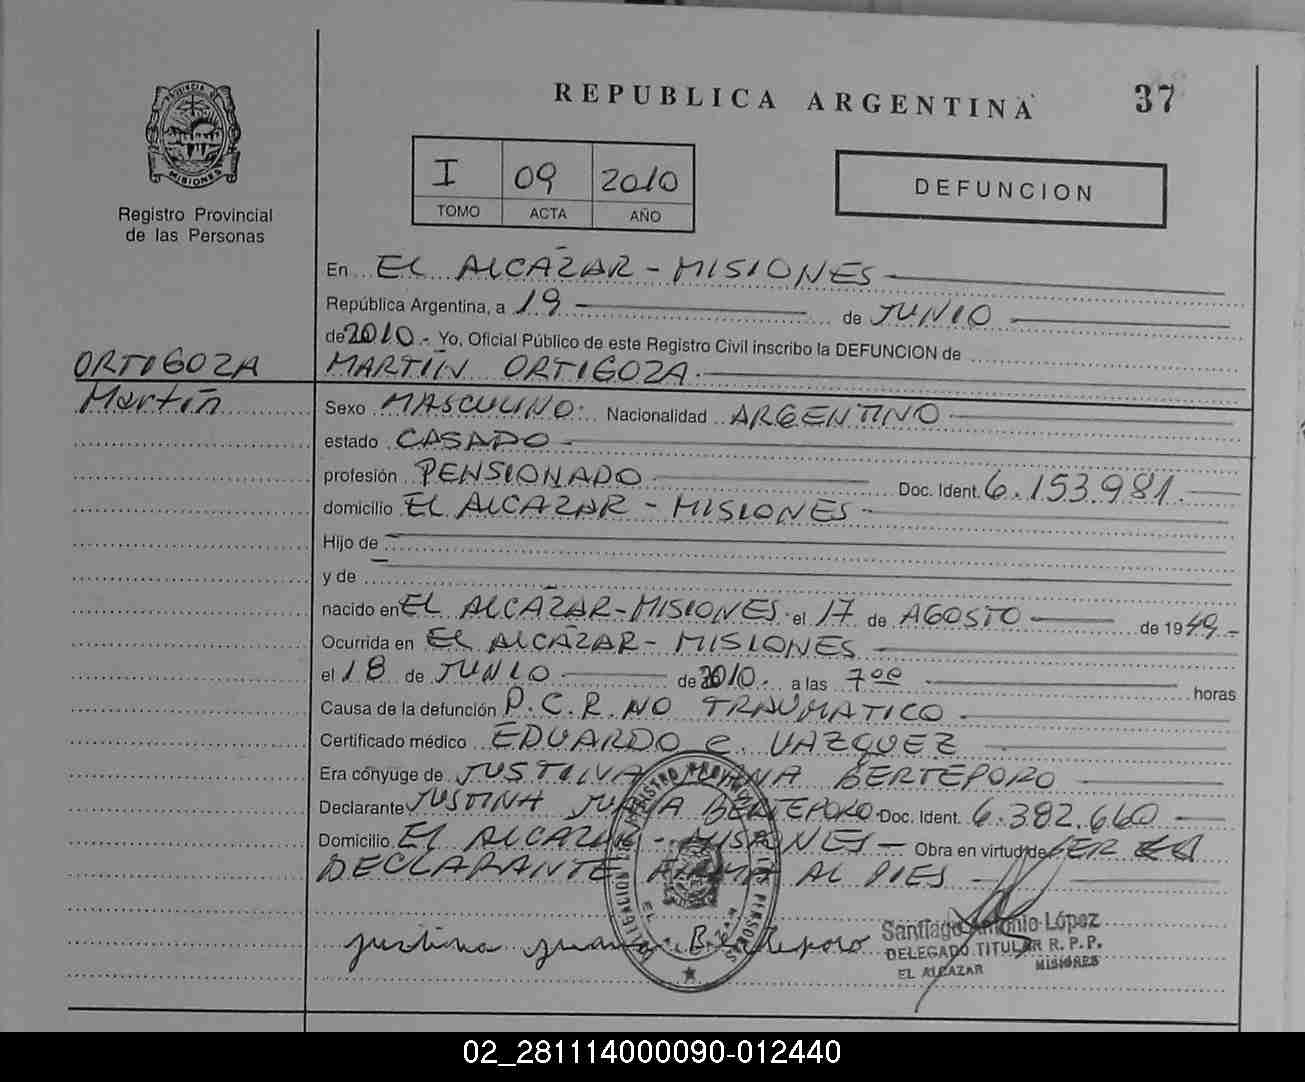 REPUBLICA ARGENTINA
37
PROVINCIA DE
MISIONES
Registro Provincial
de las Personas
I 09 2010
TOMO ACTA AÑO
DEFUNCION
En EL ALCAZAR - MISIONES
República Argentina, a 19 de JUNIO
de 2010.- Yo, Oficial Público de este Registro Civil inscribo la DEFUNCION de
ORTIGOZA
MARTIN ORTIGOZA
Martín
Sexo MASCULINO. Nacionalidad ARGENTINO
estado CASADO
profesión PENSIONADO Doc. Ident. 6.153.981.
domicilio EL ALCAZAR - MISIONES
Hijo de
y de
nacido en EL ALCAZAR-MISIONES. el 17 de AGOSTO de 1949.-
Ocurrida en EL ALCAZAR - MISIONES
el 18 de JUNIO de 2010. a las 7 00 horas
Causa de la defunción P.C.R. NO TRAUMATICO
Certificado médico EDUARDO C. VAZQUEZ
Era cónyuge de JUSTINA JUANA BERTEPORO
Declarante JUSTINA JUANA BERTEPORO. Doc. Ident. 6.382.660
Domicilio EL ALCAZAR - MISIONES - Obra en virtud de SER
DECLARANTE FIRMA AL PIES
justina juana Berteporo
Santiago Antonio López
DELEGADO TITULAR R. P. P.
EL ALCAZAR MISIONES
02_281114000090-012440